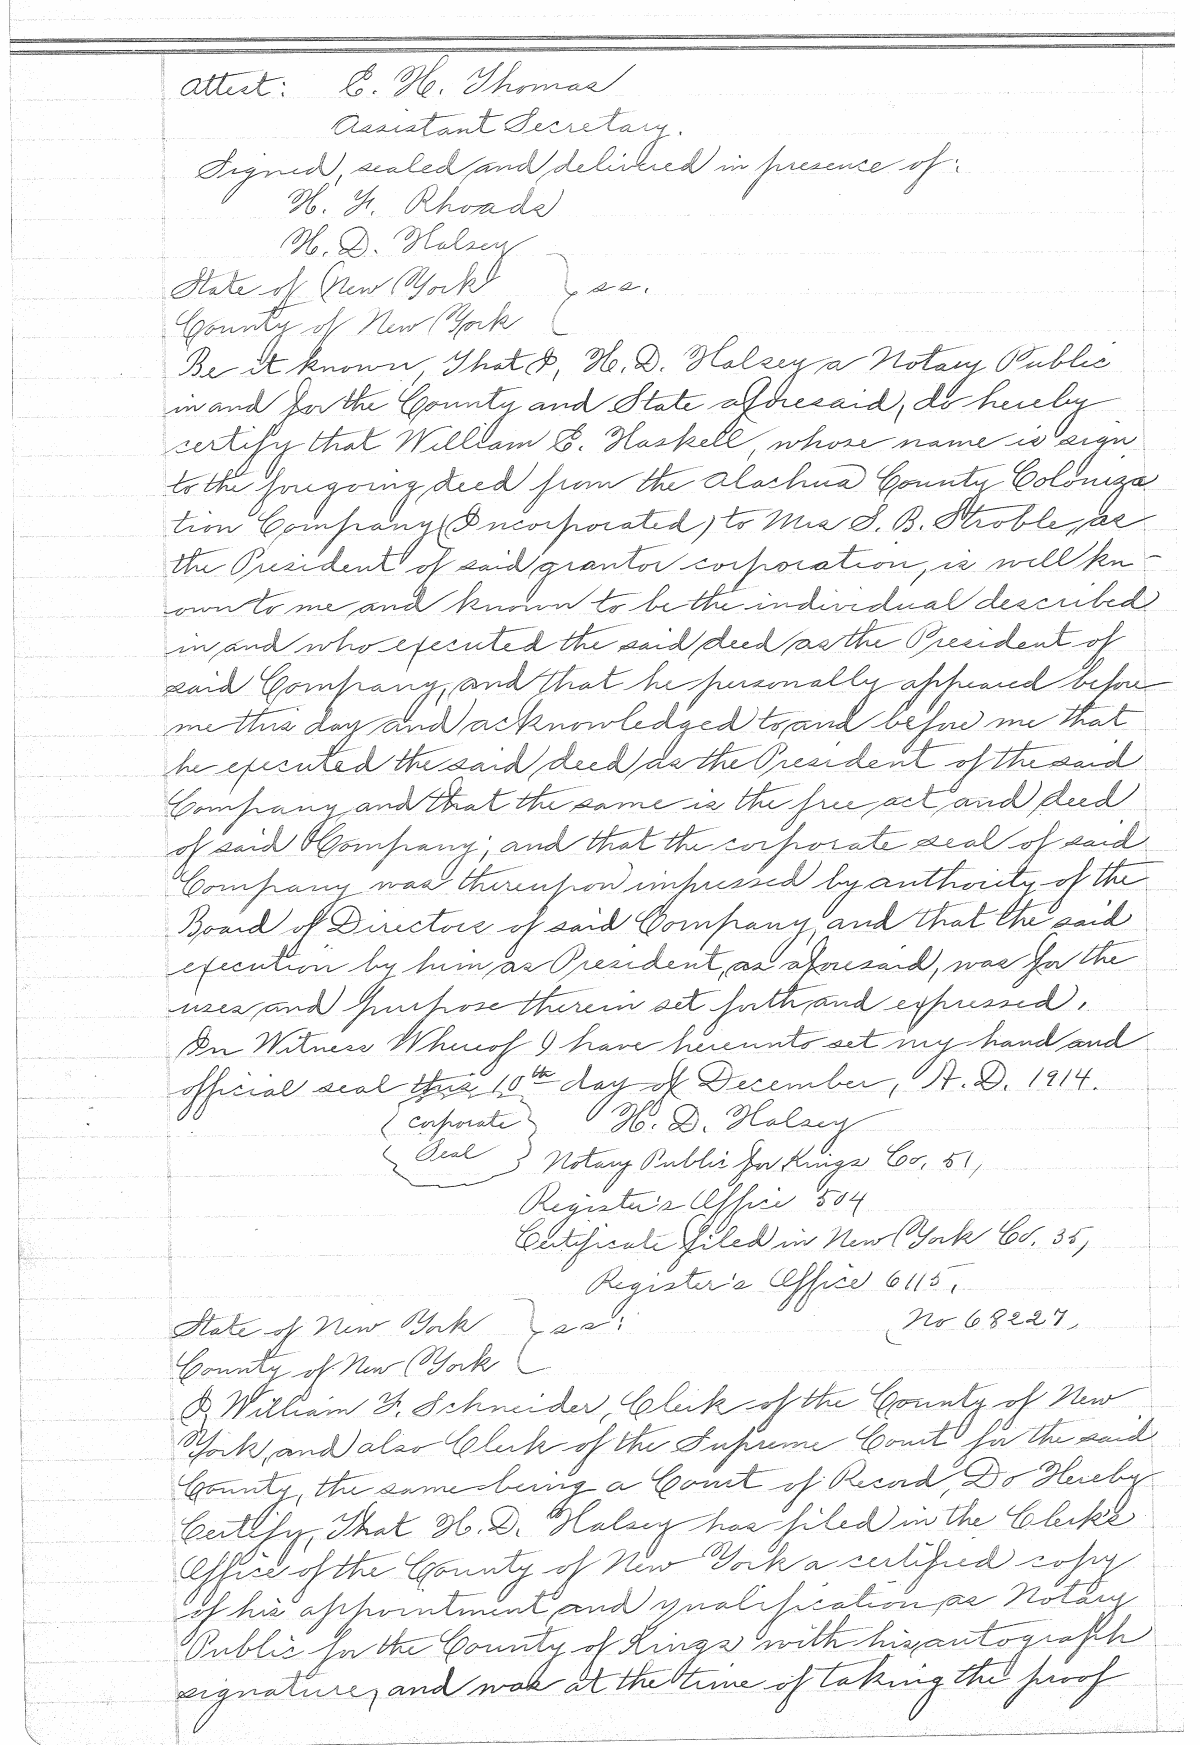 Attest: E. H. Thomas
Assistant Secretary.
Signed, sealed and delivered in presence of:
H. F. Rhoads
H. D. Halsey
State of New York } ss.
County of New York
Be it known, That I, H. D. Halsey a Notary Public
in and for the County and State aforesaid, do hereby
certify that William E. Haskell, whose name is sign
to the foregoing deed from the Alachua County Coloniza
tion Company (Incorporated) to Mrs S. B. Stroble, as
the President of said grantor corporation, is well kn-
own to me and known to be the individual described
in and who executed the said deed as the President of
said Company, and that he personally appeared before
me this day and acknowledged to and before me that
he executed the said deed as the President of the said
Company and that the same is the free act and deed
of said Company; and that the corporate seal of said
Company was thereupon impressed by authority of the
Board of Directors of said Company, and that the said
execution by him, as President, as aforesaid, was for the
uses and purpose therein set forth and expressed.
In Witness Whereof I have hereunto set my hand and
official seal this 10th day of December, A. D. 1914.
Corporate Seal H. D. Halsey
Notary Public for Kings Co. 51,
Register's Office 504
Certificate filed in New York Co. 35,
Register's Office 6115.
No 68227,
State of New York } ss:
County of New York
I William F. Schneider, Clerk of the County of New
York, and also Clerk of the Supreme Court for the said
County, the same being a Court of Record, Do Hereby
Certify, That H. D. Halsey has filed in the Clerk's
Office of the County of New York a certified copy
of his appointment and qualification as Notary
Public for the County of Kings with his autograph
signature, and was at the time of taking the proof